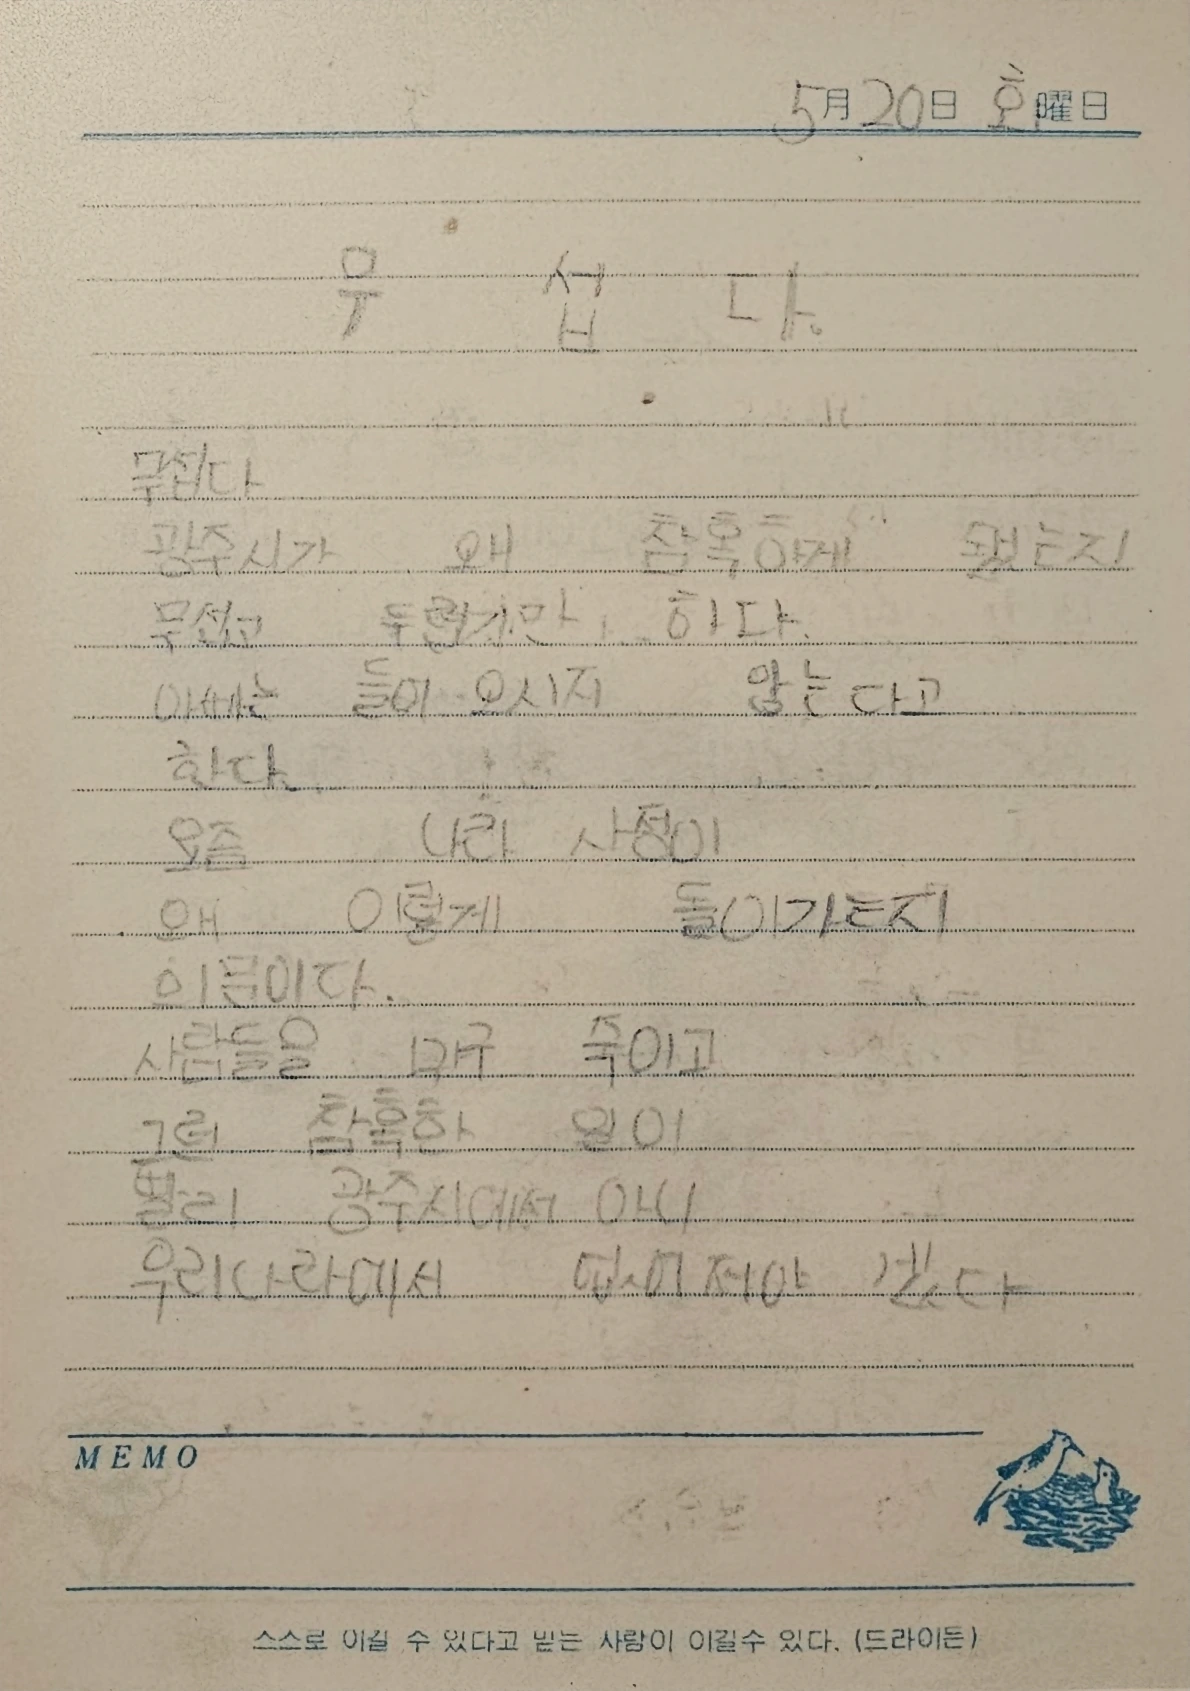 5月 20日 화曜日
무 섭 다.
무섭다
광주시가 왜 참혹하게 됐는지
무섭고 두렵기만 하다.
아빠는 들어오시지 않는다고
하다.
요즘 나라 사정이
왜 이렇게 돌아가는지
의문이다.
사람들을 마구 죽이고
그런 참혹한 일이
빨리 광주시에서 아니
우리나라에서 없어져야 겠다
MEMO
스스로 이길 수 있다고 믿는 사람이 이길수 있다. (드라이든)